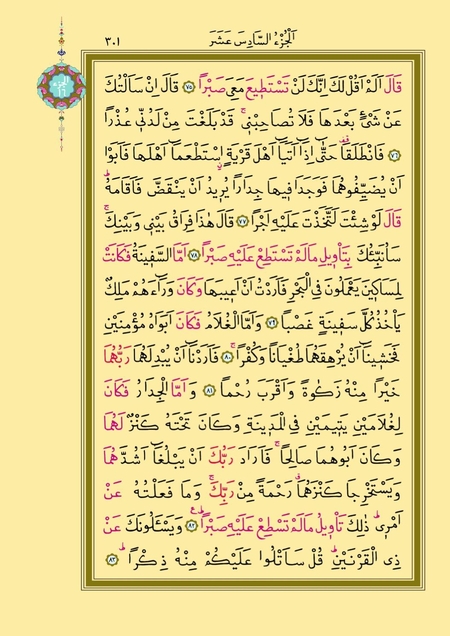 اَلْجُزْءُ السَّادِسَ عَشَرَ
٣٠١
قَالَ اَلَمْ اَقُلْ لَكَ اِنَّكَ لَنْ تَسْتَطٖيعَ مَعِيَ صَبْرًا ﴿٧٥﴾ قَالَ اِنْ سَاَلْتُكَ
عَنْ شَيْءٍ بَعْدَهَا فَلَا تُصَاحِبْنٖيۚ قَدْ بَلَغْتَ مِنْ لَدُنّٖي عُذْرًا
﴿٧٦﴾ فَانْطَلَقَا۠ حَتّٰٓى اِذَٓا اَتَيَٓا اَهْلَ قَرْيَةٍۨ اسْتَطْعَمَٓا اَهْلَهَا فَاَبَوْا
اَنْ يُضَيِّفُوهُمَا فَوَجَدَا فٖيهَا جِدَارًا يُرٖيدُ اَنْ يَنْقَضَّ فَاَقَامَهُۜ
قَالَ لَوْ شِئْتَ لَتَّخَذْتَ عَلَيْهِ اَجْرًا ﴿٧٧﴾ قَالَ هٰذَا فِرَاقُ بَيْنٖي وَبَيْنِكَۚ
سَاُنَبِّئُكَ بِتَأْوٖيلِ مَا لَمْ تَسْتَطِعْ عَلَيْهِ صَبْرًا ﴿٧٨﴾ اَمَّا السَّفٖينَةُ فَكَانَتْ
لِمَسَاكٖينَ يَعْمَلُونَ فِي الْبَحْرِ فَاَرَدْتُ اَنْ اَعٖيبَهَا وَكَانَ وَرَٓاءَهُمْ مَلِكٌ
يَأْخُذُ كُلَّ سَفٖينَةٍ غَصْبًا ﴿٧٩﴾ وَاَمَّا الْغُلَامُ فَكَانَ اَبَوَاهُ مُؤْمِنَيْنِ
فَخَشٖينَٓا اَنْ يُرْهِقَهُمَا طُغْيَانًا وَكُفْرًاۚ ﴿٨٠﴾ فَاَرَدْنَٓا اَنْ يُبْدِلَهُمَا رَبُّهُمَا
خَيْرًا مِنْهُ زَكٰوةً وَاَقْرَبَ رُحْمًا ﴿٨١﴾ وَاَمَّا الْجِدَارُ فَكَانَ
لِغُلَامَيْنِ يَتٖيمَيْنِ فِي الْمَدٖينَةِ وَكَانَ تَحْتَهُ كَنْزٌ لَهُمَا
وَكَانَ اَبُوهُمَا صَالِحًاۚ فَاَرَادَ رَبُّكَ اَنْ يَبْلُغَٓا اَشُدَّهُمَا
وَيَسْتَخْرِجَا كَنْزَهُمَاۗ رَحْمَةً مِنْ رَبِّكَۚ وَمَا فَعَلْتُهُ عَنْ
اَمْرٖيۜ ذٰلِكَ تَأْوٖيلُ مَا لَمْ تَسْطِعْ عَلَيْهِ صَبْرًاۜ ﴿٨٢﴾ وَيَسْـَٔلُونَكَ عَنْ
ذِي الْقَرْنَيْنِۜ قُلْ سَاَتْلُوا عَلَيْكُمْ مِنْهُ ذِكْرًاۜ ﴿٨٣﴾